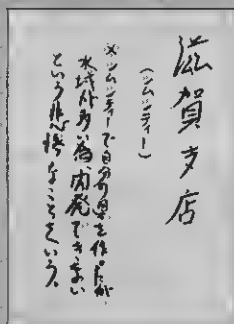 滋賀支店
(シムシティー)
※シムシティーで自分の県を作ったが、
水域が多い為、開発できない
という悲惨なことをいう。